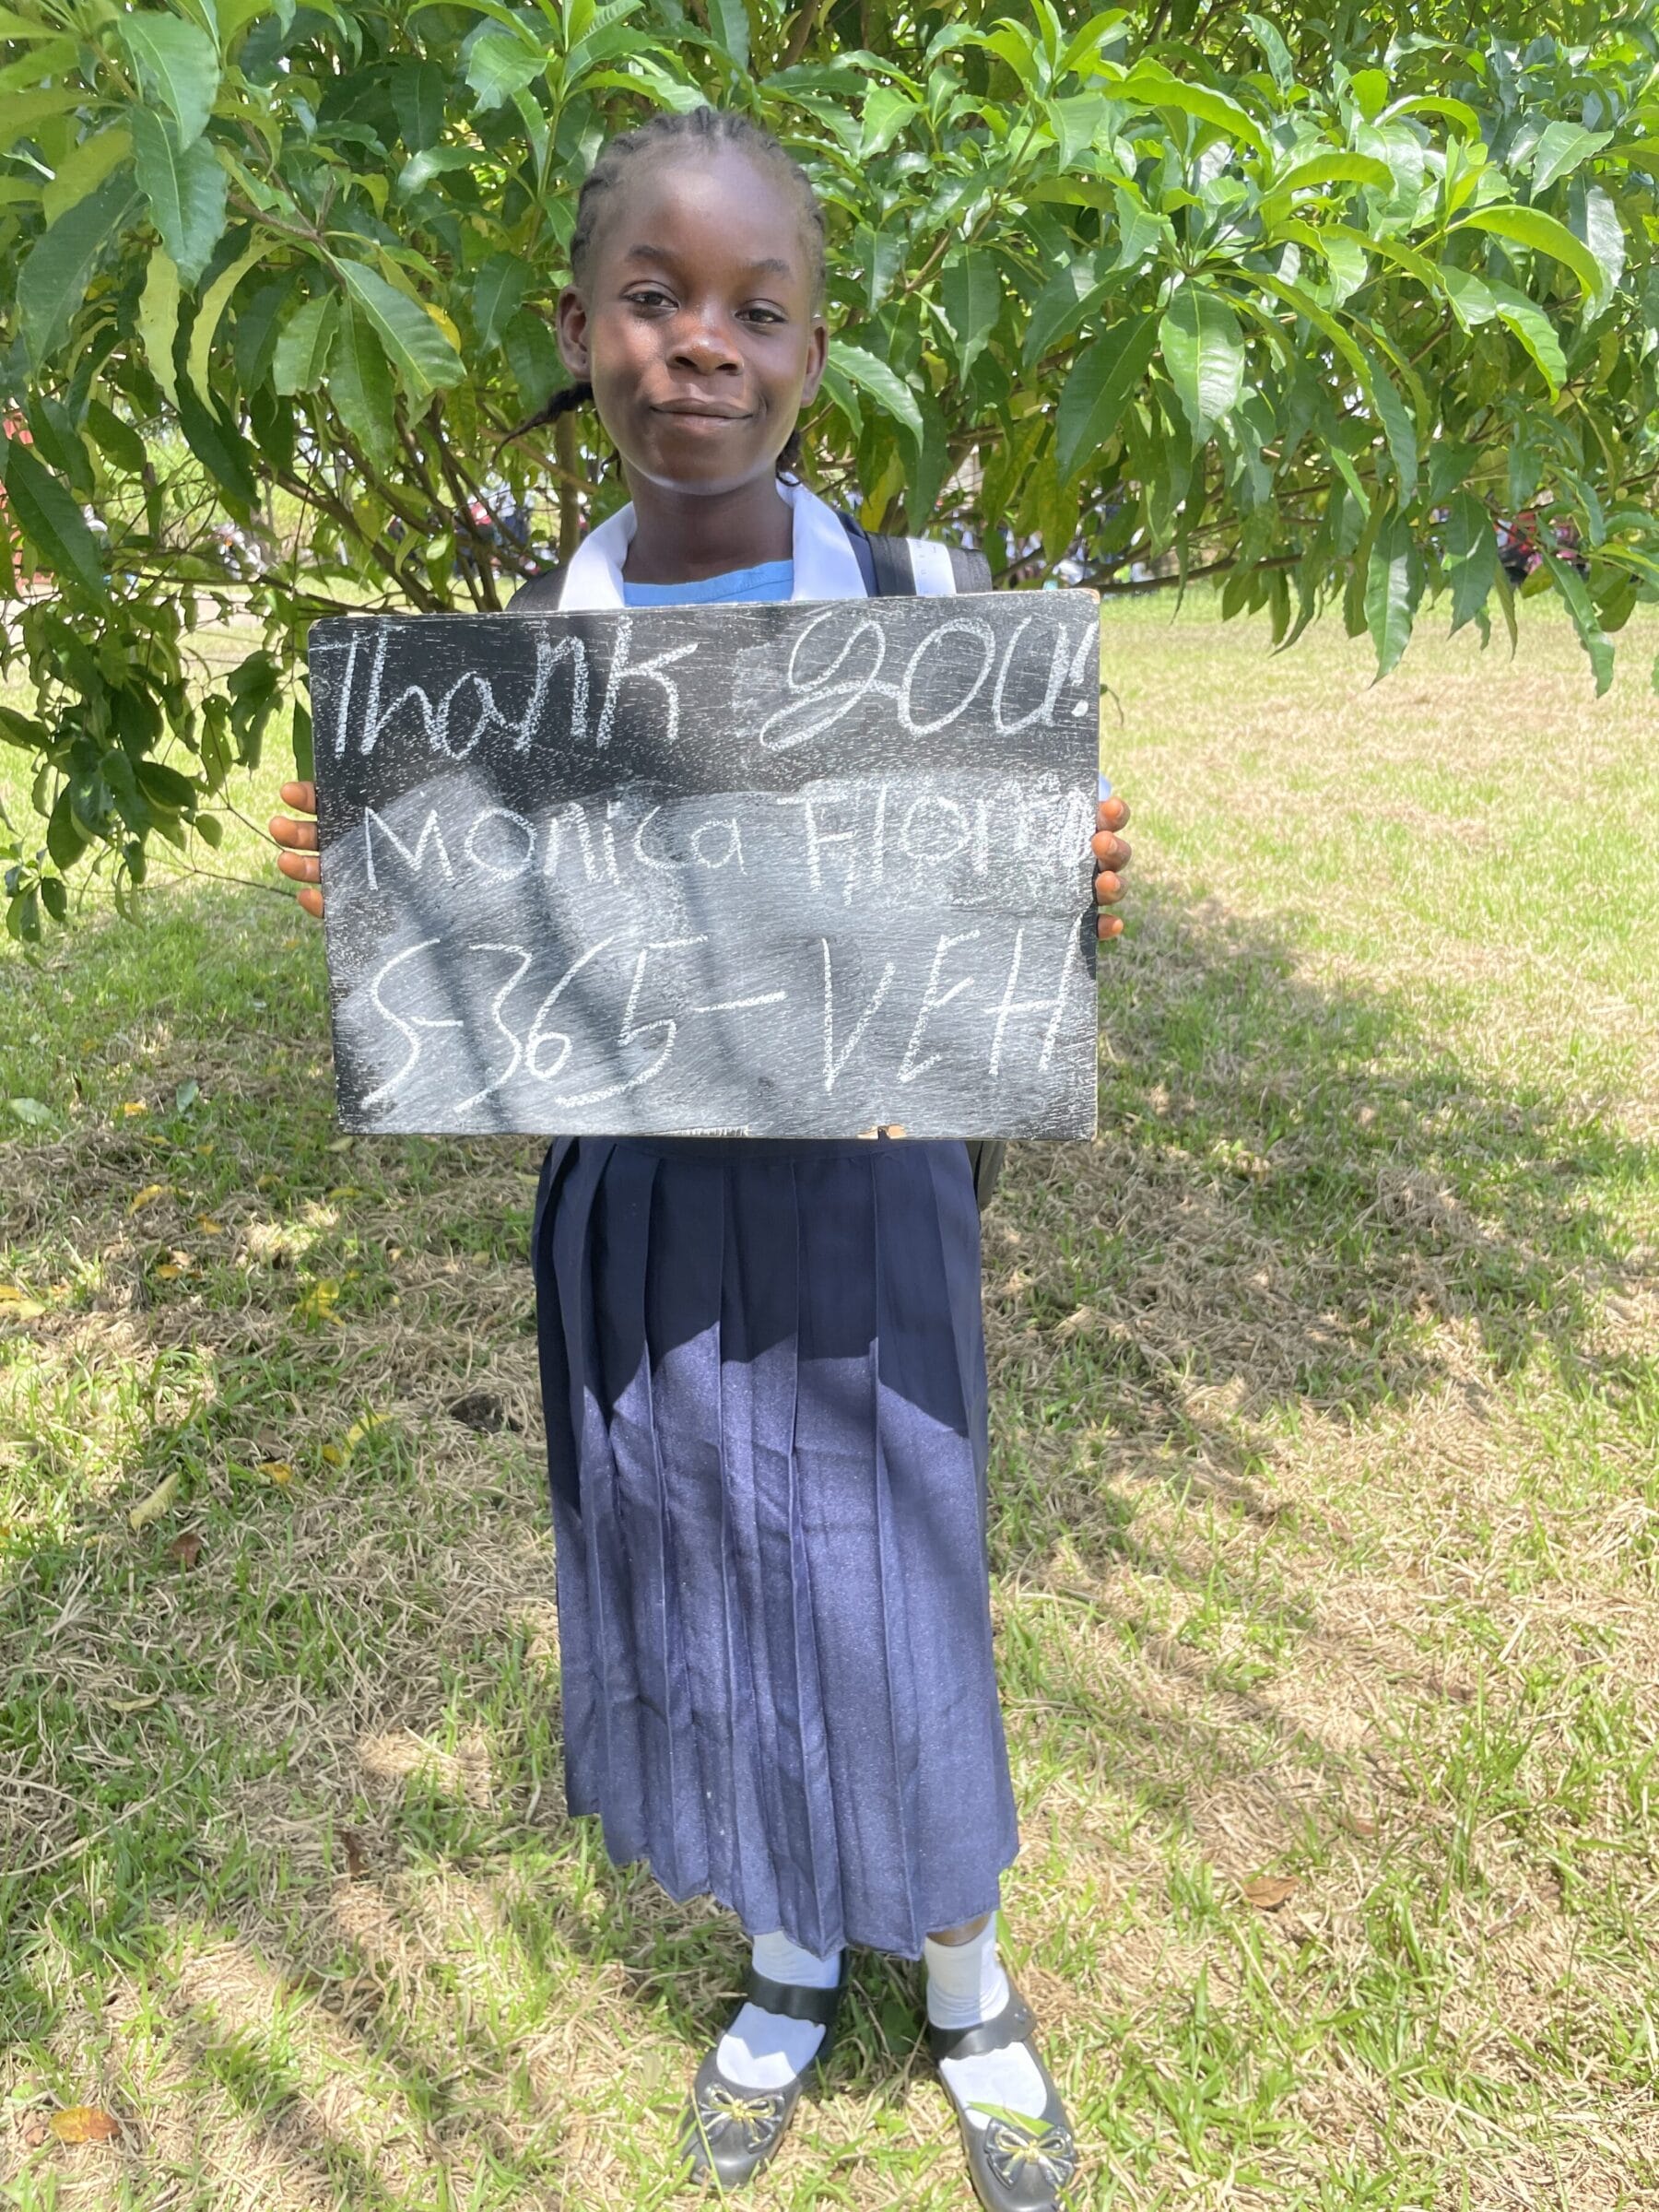 Thank you!
Monica
S-365-VEH